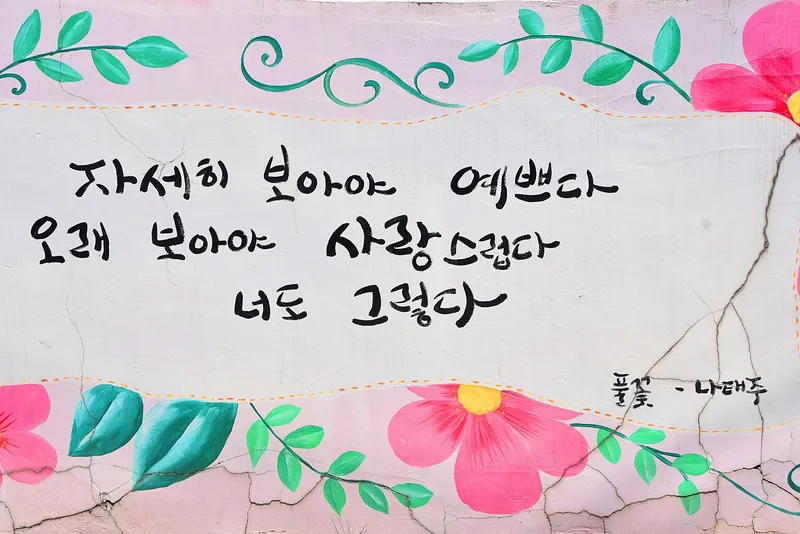 자세히 보아야 예쁘다
오래 보아야 사랑스럽다
너도 그렇다
풀꽃 - 나태주